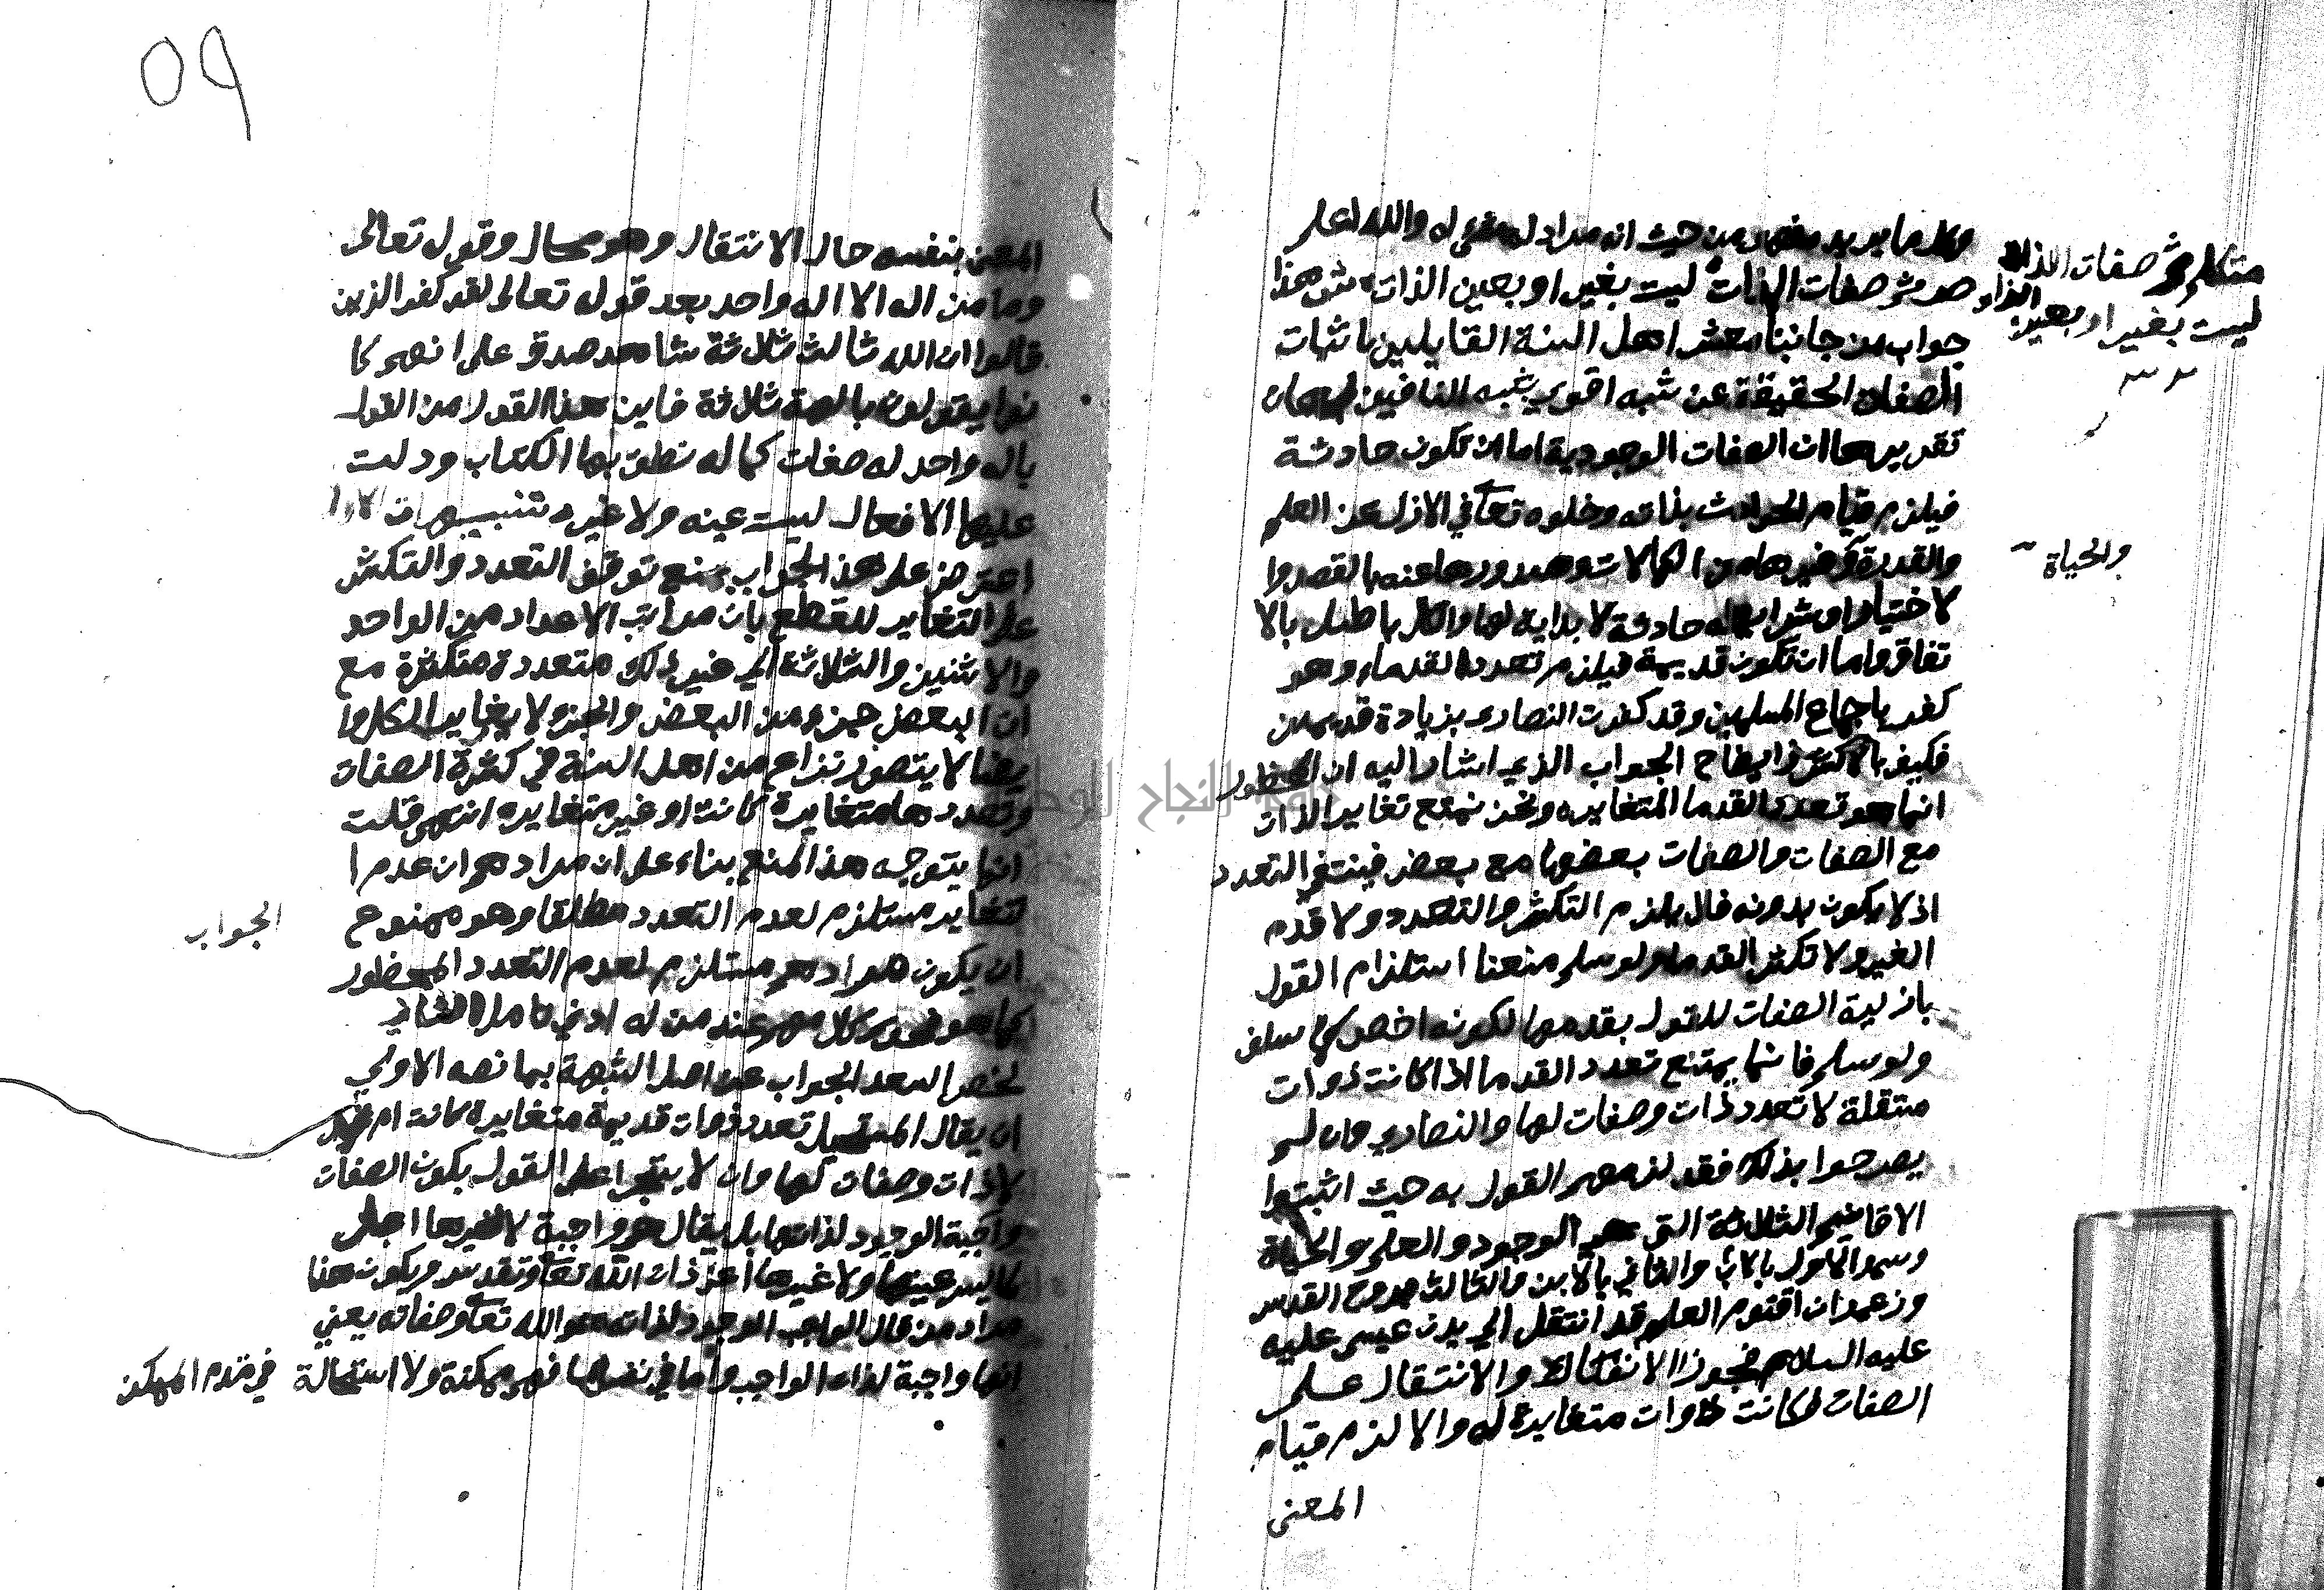 وكل ما يريد من حيث انه مراد له والله اعلم
ص م ثم صفات الذات ليست بغير او بعين الذات ش هذا
متكلم ثم صفات الذات
ليست بغير او بعين الذات
جواب من جانبنا معشر اهل السنة القايلين باثبات
الصفات الحقيقة عن شبه اقوي شبه النافين لها
تقديرها ان الصفات الوجودية اما ان تكون حادثة
فيلزم قيام الحوادث بذاته وخلوه تعا في الازل عن العلم
والقدرة وغيرها من الكمالات وصدورها عنه بالقصد وا
والحياة
لاختيار او شرايط حادثة لا بداية لها والكل باطل بالا
تفاق واما ان تكون قديمة فيلزم تعدد القدماء وهو
كفر باجماع المسلمين وقد كفرت النصارى بزيادة قديمين
فكيف بالاكثر وايضاح الجواب الذي اشار اليه ان المحظور
انما هو تعدد القدما المتغايره ونحن نمنع تغاير الذات
مع الصفات والصفات بعضها مع بعض فينتفي التعدد
اذ لا يكون بدونه فلا يلزم التكثر والتعدد ولا قدم
الغير ولا تكثر القدما ولو سلم منعنا استلزام القول
بازلية الصفات للقول بقدمها لكونه اخص كما سلف
ولو سلم فانما يمتنع تعدد القدما اذا كانت ذوات
مستقلة لا تعدد ذات وصفات لها والنصاري وان لم
يصرحوا بذلك فقد لزمهم القول به حيث اثبتوا
الاقانيم الثلاثة التي هي الوجود والعلم والحياة
وسموا الاول بالاب والثاني بالابن والثالث بروح القدس
وزعموا ان اقنوم العلم قد انتقل الي بدن عيسى عليه
عليه السلام فجوزوا الانفكاك والانتقال على
الصفات فكانت ذوات متغايرة له والا لزم قيام
المعنى
٥٩
المعنى بنفسه حال الانتقال وهو محال وقوله تعالى
وما من اله الا اله واحد بعد قوله تعالى لقد كفر الذين
قالوا ان الله ثالث ثلاثة شاهد صدق على انهم كا
نوا يقولون بالهة ثلاثة فاين هذا القول من القول
باله واحد له صفات كماله نطق بها الكتاب ودلت
عليها الافعال ليست عينه ولا غيره تنبيهات الاول
اعترض على هذا الجواب بمنع توقف التعدد والتكثر
على التغاير للقطع بان مراتب الاعداد من الواحد
والاثنين والثلاثة الي غير ذلك متعددة متكثرة مع
ان البعض جزء من البعض والجزء لا يغاير الكل وا
يضا لا يتصور نزاع من اهل السنة في كثرة الصفات
وتعددها متغايرة كانت او غير متغايره انتهى قلت
انما يتوجه هذا المنع بناء على ان مرادهم ان عدم ا
لتغاير مستلزم لعدم التعدد مطلقا وهو ممنوع
الجواب
ان يكون مرادهم مستلزم لعدم التعدد المحظور
كما هو كلامهم عند من له ادني تامل الثاني
لخص السعد الجواب عن اصل الشبهة بما نصه الاولي
ان يقال المستحيل تعدد ذوات قديمة متغايرة كانت ام
لا ذات وصفات لها وان لا يتجرا على القول بكون الصفات
واجبة الوجود لذاتها بل يقال هي واجبة لا لغيرها اجل
لما ليس عينها ولا غيرها اعني ذات الله تعا وتقدس ويكون هذا
مراد من قال الواجب الوجود لذاته هو الله تعا وصفاته يعني
انها واجبة لذات الواجب واما في نفسها فهي ممكنة ولا استحالة في قدم الممكن